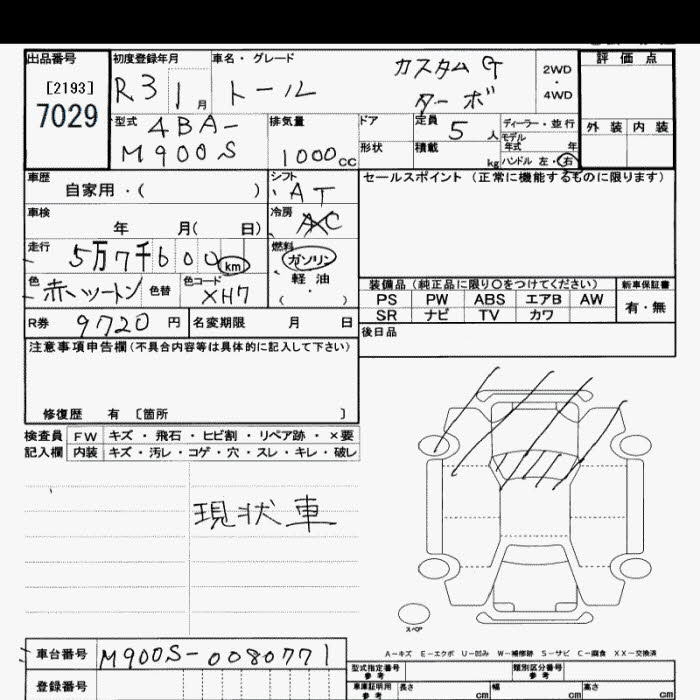 出品番号 初度登録年月 車名・グレード 評価点
[2193] R3 1月 トール カスタムG 2WD・4WD
7029 ターボ
型式 4BA- 排気量 ドア 定員 5人 ディーラー・並行 外装 内装
M900S 1000cc 形状 積載 kg モデル年式 年
ハンドル 左・右
車歴 シフト セールスポイント (正常に機能するものに限ります)
自家用・( ) AT
車検 冷房
年 月( 日) AC
走行 5万7千600km 燃料 ガソリン
色 赤いツートン 色替 色コード XH7 軽油 ・( )
装備品 (純正品に限り○をつけてください) 新車保証書
PS PW ABS エアB AW 有・無
SR ナビ TV カワ
R券 9720円 名変期限 月 日 後日品
注意事項申告欄(不具合内容等は具体的に記入して下さい)
修復歴 有 〔箇所 〕
検査員 FW キズ・飛石・ヒビ割・リペア跡・×要
記入欄 内装 キズ・汚レ・コゲ・穴・スレ・キレ・破レ
現状車
スペア
A-キズ E-エクボ U-凹み W-補修跡 S-サビ C-腐食 XX-交換済
車台番号 M900S-0080771 型式指定番号 参考 類別区分番号 参考
登録番号 車庫証明用 参考 長さ cm 幅 cm 高さ cm